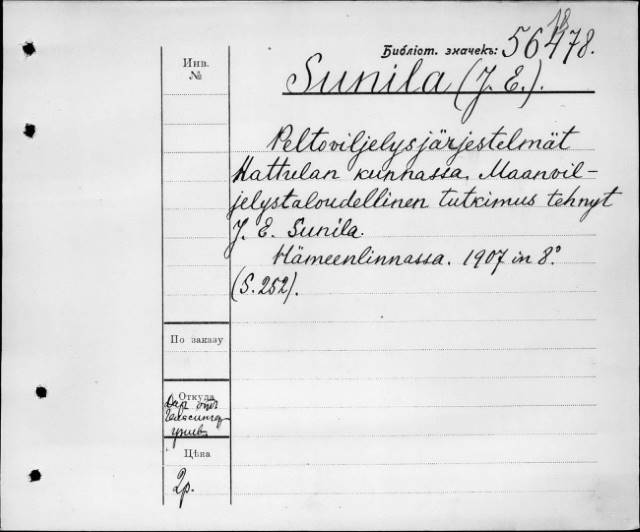 Библіот. значекъ: 56478.
Инв.
№
Sunila (J. E.).
Peltoviljelysjärjestelmät
Hattulan kunnassa. Maanvil-
jelystaloudellinen tutkimus tehnyt
J. E. Sunila.
Hämeenlinnassa. 1907 in 8º
(S. 252).
По заказу
Откуда
Дар отъ
Гельсингф.
унив.
Цѣна
2р.